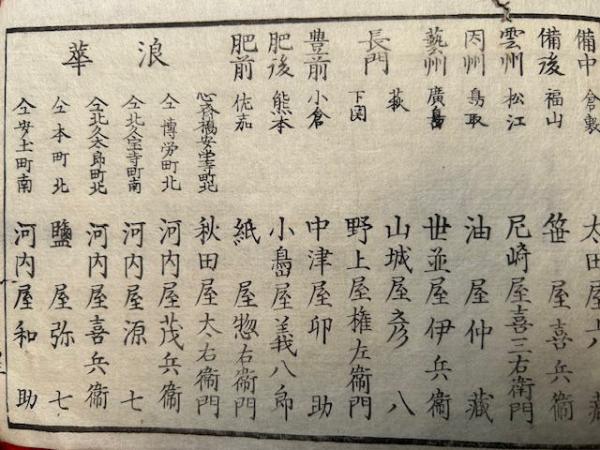 備中 倉敷 太田屋 藏
備後 福山 笹屋喜兵衞
雲州 松江 尼崎屋喜三右衞門
因州 鳥取 油屋仲藏
藝州 廣島 世並屋伊兵衞
長門 萩 山城屋彦八
下関 野上屋権左衞門
豊前 小倉 中津屋卯助
肥後 熊本 小島屋義八郎
肥前 佐嘉 紙屋惣右衞門
浪華
心斎橋安堂寺町北 秋田屋太右衞門
仝 博労町北 河内屋茂兵衞
仝北久宝寺町南 河内屋源七
仝北久太郎町北 河内屋喜兵衞
仝本町北 鹽屋弥七
仝安土町南 河内屋和助